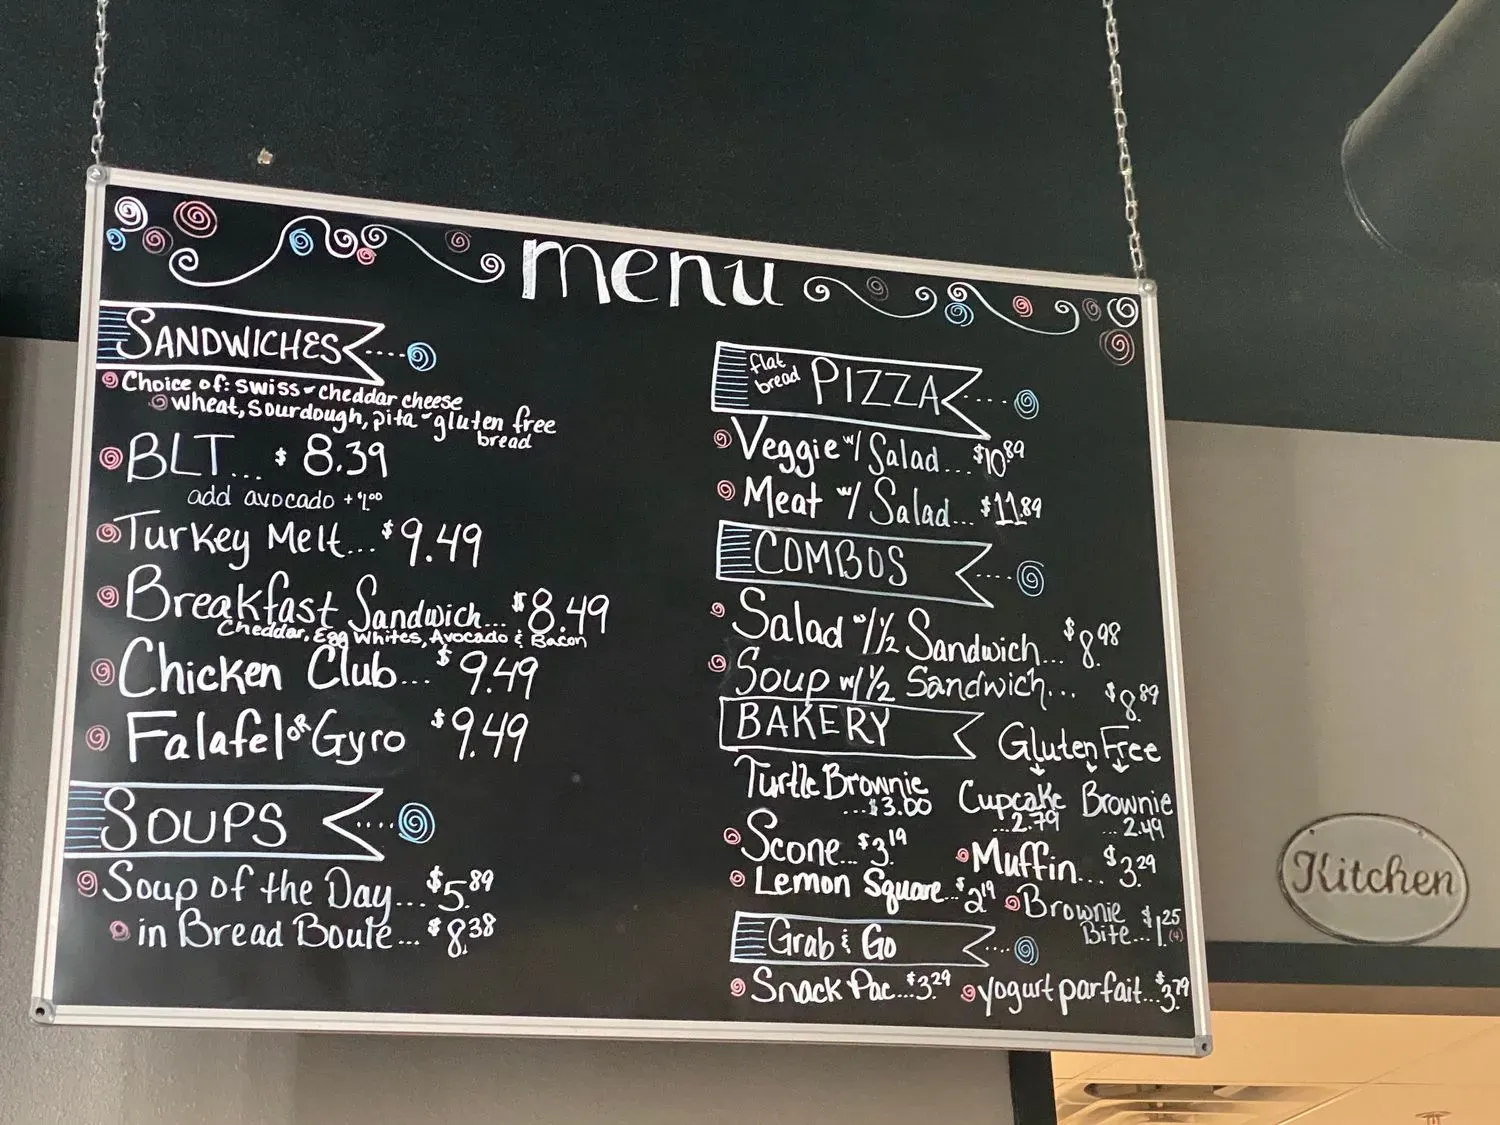 menu
SANDWICHES
Choice of: swiss - cheddar cheese
wheat, sourdough, pita - gluten free
bread
BLT... $8.39
add avocado + $1.00
Turkey Melt... $9.49
Breakfast Sandwich... $8.49
Cheddar, Egg Whites, Avocado & Bacon
Chicken Club... $9.49
Falafel or Gyro $9.49
SOUPS
Soup of the Day... $5.89
in Bread Boule... $8.38
flat bread PIZZA
Veggie w/ Salad... $10.89
Meat w/ Salad... $11.89
COMBOS
Salad w/ 1/2 Sandwich... $8.98
Soup w/ 1/2 Sandwich... $8.89
BAKERY
Turtle Brownie
...$3.00
Gluten Free
Cupcake
...2.79
Brownie
...2.49
Scone... $3.19
Muffin... $3.29
Lemon Square... $2.19
Brownie
Bite... $1.25 (4)
Grab & Go
Snack Pac... $3.29
yogurt parfait... $3.79
Kitchen